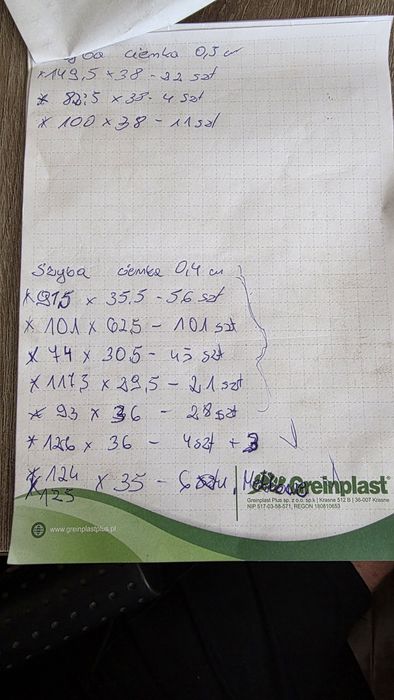 ciemka 0,5 cm
* 149,5 × 38 - 22 szt
* 82,5 × 33 - 4 szt
* 100 × 38 - 11 szt
Szyba ciemka 0,4 cm
* 91,5 × 35,5 - 56 szt
* 101 × 62,5 - 101 szt
* 74 × 30,5 - 45 szt
* 117,3 × 29,5 - 21 szt
* 93 × 36 - 28 szt
* 126 × 36 - 4 szt + 3
* 124
* 125 × 35 - 6
Greinplast
Greinplast Plus sp. z o.o. sp.k | Krasne 512 B | 36-007 Krasne
NIP 517-03-58-571, REGON 180810653
www.greinplastplus.pl